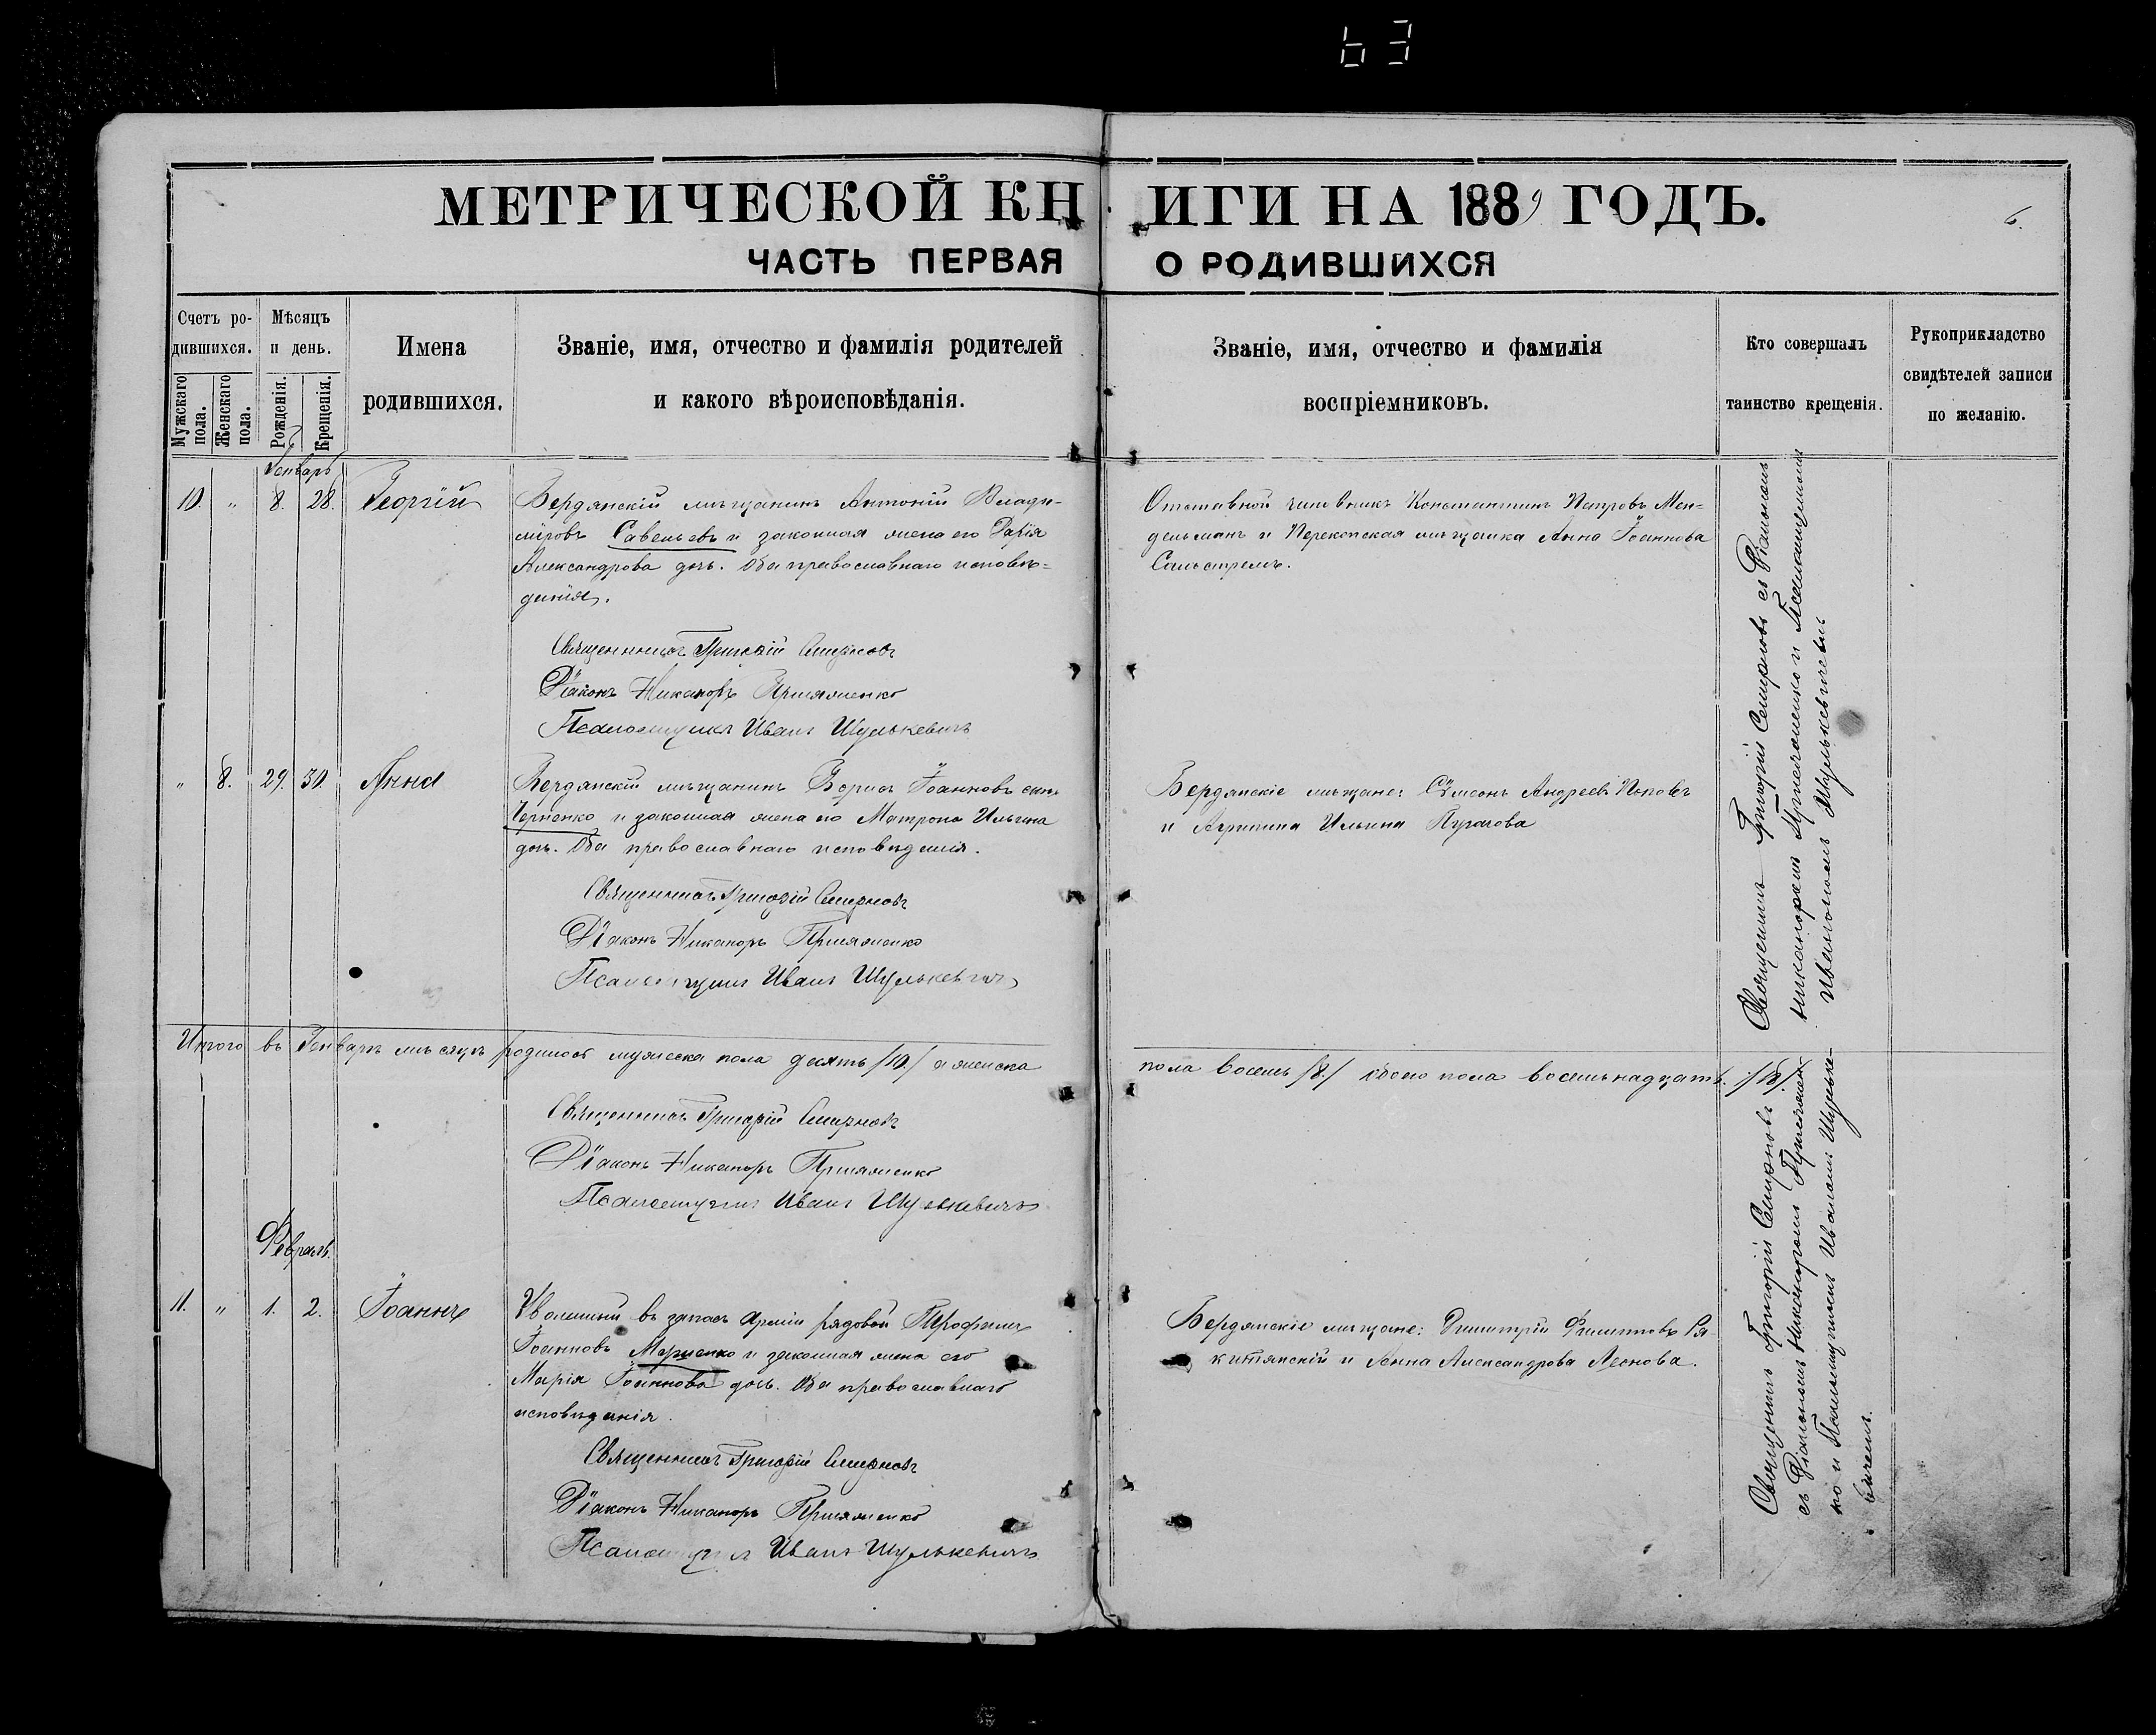 63
МЕТРИЧЕСКОЙ КНИГИ НА 1889 ГОДЪ.
6.
ЧАСТЬ ПЕРВАЯ О РОДИВШИХСЯ
Счетъ ро-
дившихся.
Мужскаго пола.
Женскаго пола.
Мѣсяцъ
и день.
Рожденія.
Крещенія.
Имена
родившихся.
Званіе, имя, отчество и фамилія родителей
и какого вѣроисповѣданія.
Званіе, имя, отчество и фамилія
воспріемниковъ.
Кто совершалъ
таинство крещенія.
Рукоприкладство
свидѣтелей записи
по желанію.
Генварь
10. " 8. 28. Георгій
Бердянскій мѣщанинъ Антоній Влади-
міровъ Савельевъ и законная жена его Дарія
Александрова дочь. Оба православнаго исповѣ-
данія.
Священникъ Григорій Смирновъ
Діаконъ Никаноръ
Псаломщикъ Иванъ Шулькевичъ
Отставной чиновникъ Константинъ Петровъ Мен-
дельманъ и Перекопская мѣщанка Анна Іоаннова
Священникъ Григорій Смирновъ съ Діакономъ
Никаноромъ и Псаломщикомъ
Иваномъ Шулькевичемъ
" 8. 29. 30. Анна
Бердянскій мѣщанинъ Борисъ Іоанновъ сынъ
Черненко и законная жена его Матрона Ильина
дочь. Оба православнаго исповѣданія.
Священникъ Григорій Смирновъ
Діаконъ Никаноръ
Псаломщикъ Иванъ Шулькевичъ
Бердянскіе мѣщане: Сѵмеонъ Андреевъ Поповъ
и Ильина
Итого въ Генварѣ мѣсяцѣ родилось мужеска пола десять /10/ а женска
пола восемь /8/ обоего пола восемьнадцать. /18/
Священникъ Григорій Смирновъ
Діаконъ Никаноръ
Псаломщикъ Иванъ Шулькевичъ
Февраль.
11. " 1. 2. Іоаннъ
Уволенный въ запасъ арміи рядовой Трофимъ
Іоанновъ Марченко и законная жена его
Марія Іоаннова дочь. Оба православнаго
исповѣданія.
Священникъ Григорій Смирновъ
Діаконъ Никаноръ
Псаломщикъ Иванъ Шулькевичъ
Бердянскіе мѣщане: Димитрій Филипповъ Ра-
китянскій и Анна Александрова Леонова.
Священникъ Григорій Смирновъ
съ Діакономъ Никаноромъ
ко и Псаломщикомъ Иваномъ Шульке-
вичемъ.